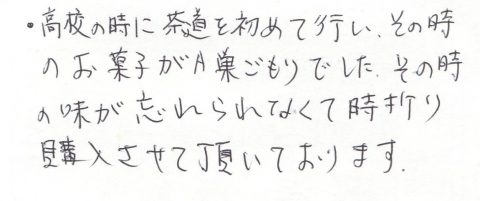 ・高校の時に茶道を初めて行い、その時
のお菓子が月巣ごもりでした。その時
の味が忘れられなくて時折り
購入させて頂いております。